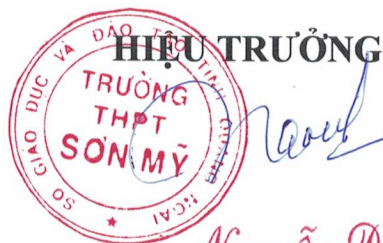 HIỆU TRƯỞNG
SỞ GIÁO DỤC VÀ ĐÀO TẠO TỈNH QUẢNG NGÃI
TRƯỜNG
THPT
SƠN MỸ
Nguyễn